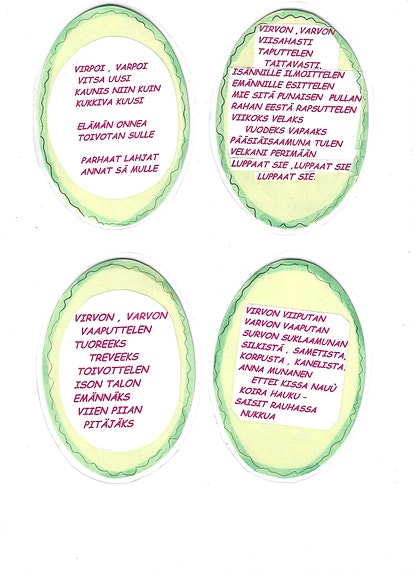 VIRPOI , VARPOI
VITSA UUSI
KAUNIS NIIN KUIN
KUKKIVA KUUSI
ELÄMÄN ONNEA
TOIVOTAN SULLE
PARHAAT LAHJAT
ANNAT SÄ MULLE
VIRVON ,VARVON
VIISAHASTI
TAPUTTELEN
TAITAVASTI.
ISÄNNILLE ILMOITTELEN
EMÄNNILLE ESITTELEN
MIE SITÄ PUNAISEN PULLAN
RAHAN EESTÄ RAPSUTTELEN
VIIKOKS VELAKS
VUODEKS VAPAAKS
PÄÄSIÄISAAMUNA TULEN
VELKANI PERIMÄÄN
LUPPAAT SIE ,LUPPAAT SIE
LUPPAAT SIE.
VIRVON , VARVON
VAAPUTTELEN
TUOREEKS
TREVEEKS
TOIVOTTELEN
ISON TALON
EMÄNNÄKS
VIIEN PIIAN
PITÄJÄKS
VIRVON VIIPUTAN
VARVON VAAPUTAN
SURVON SUKLAAMUNAN
SILKISTÄ , SAMETISTA,
KORPUSTA , KANELISTA.
ANNA MUNANEN
ETTEI KISSA NAUÙ
KOIRA HAUKU -
SAISIT RAUHASSA
NUKKUA